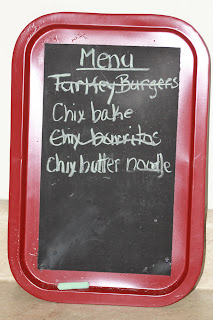 Menu
Turkey Burgers
Chix bake
Chix burritos
Chix butter noodle